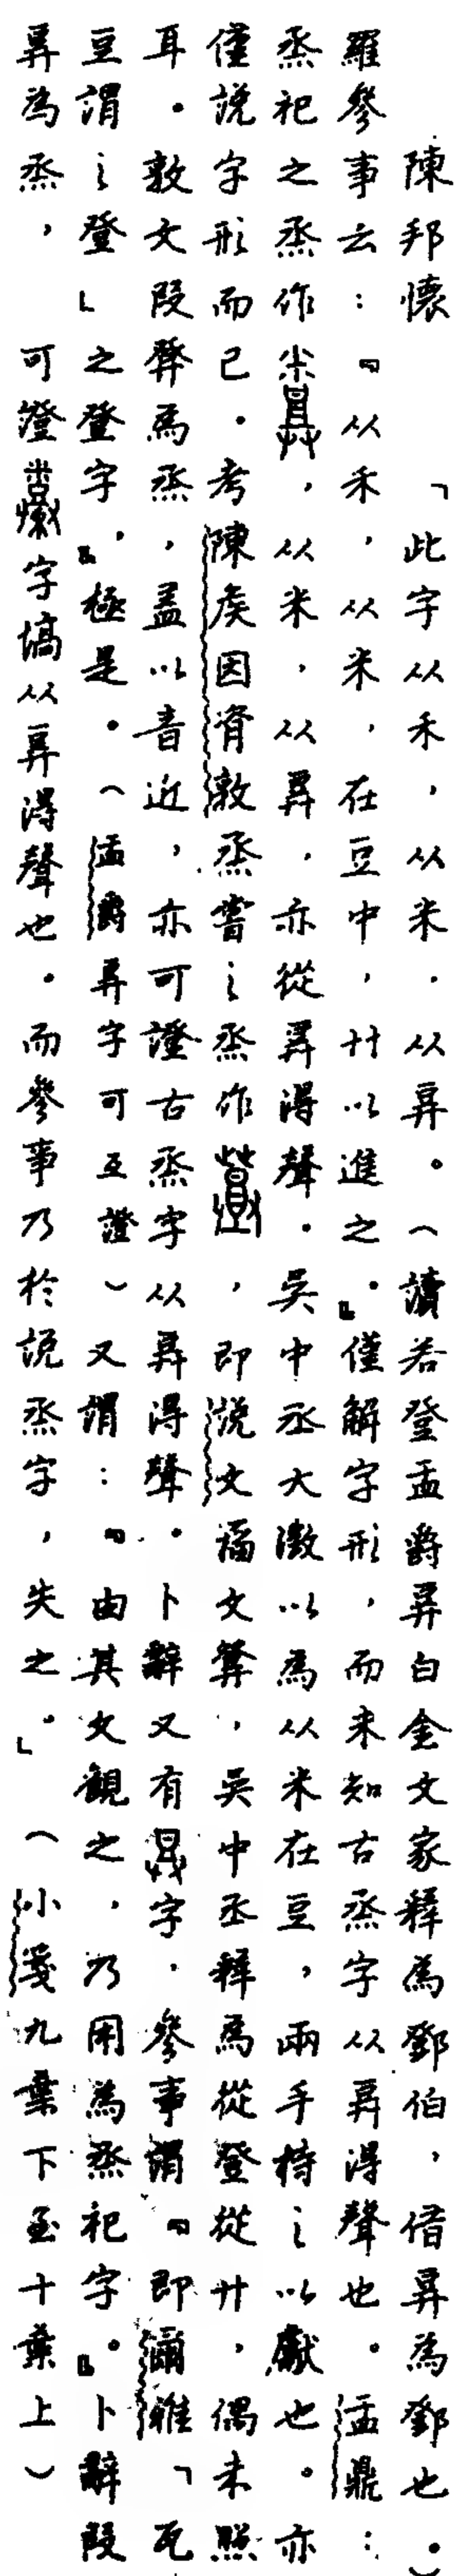 陳邦懷「此字从禾，从米．从㫒。（讀若登盂爵㫒白金文家釋為鄧伯，借㫒為鄧也。）
羅參事云：『从禾，从米，在豆中，廾以進之。』僅解字形，而未知古烝字从㫒得聲也。盂鼎：
烝祀之烝作，从米，从㫒，亦從㫒得聲。吳中丞大澂以為从米在豆，兩手持之以獻也。亦
僅說字形而已。考陳矦因資敦烝嘗之烝作，即說文籀文，吳中丞釋為從登從廾，偶未照
耳。敦文段為烝，蓋以音近，亦可證古烝字从㫒得聲。卜辭又有字，參事謂『即爾雅「瓦
豆謂之登」之登字』，極是。（盂爵㫒字可互證）又謂：『由其文觀之，乃用為烝祀字』。卜辭段
㫒為烝，可證字塙从㫒得聲也。而參事乃於說烝字，失之。」（小箋九葉下至十葉上）